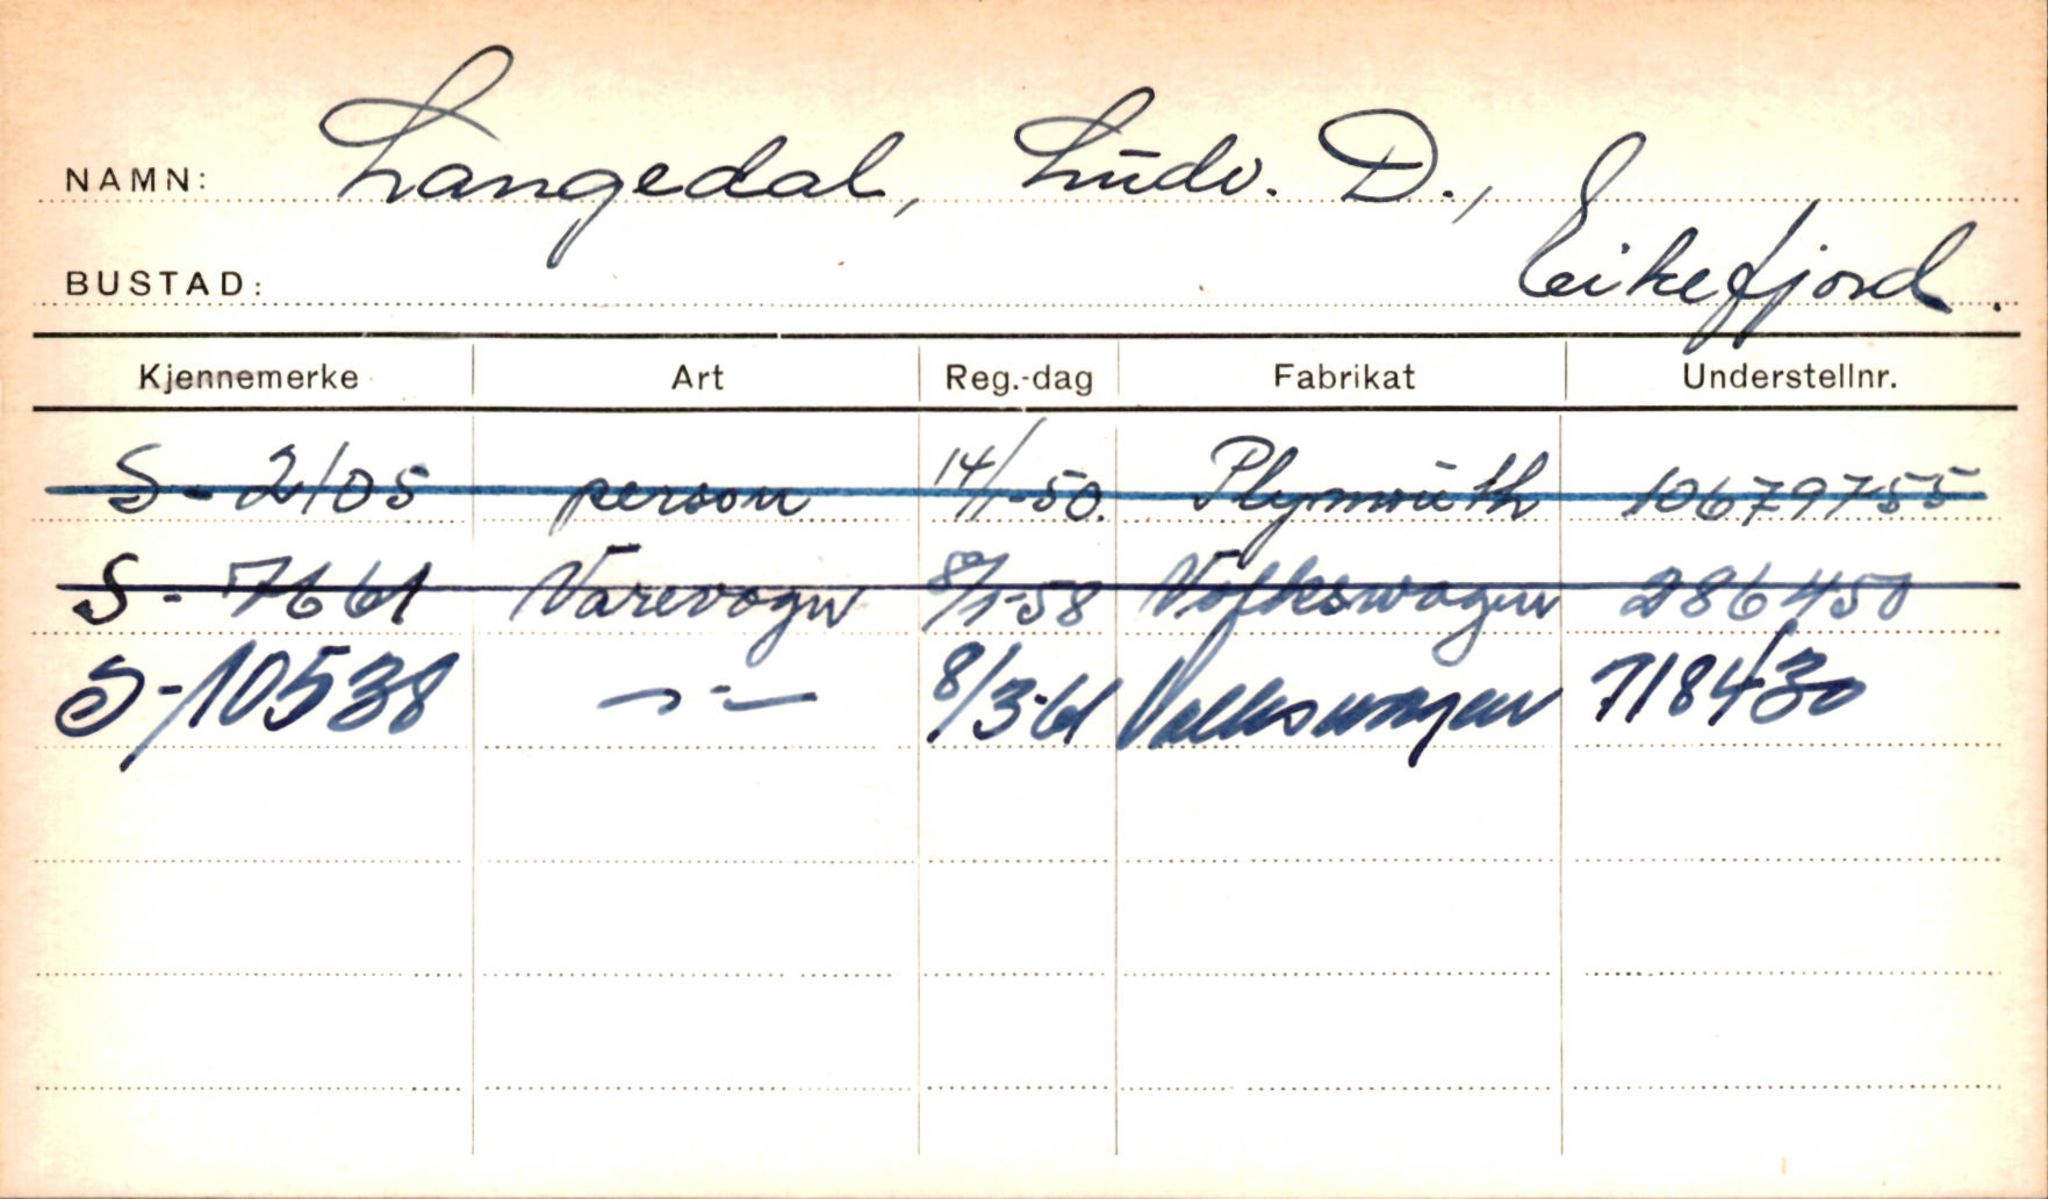 NAMN: Langedal, Ludv. D.,
BUSTAD: Eikefjord.
Kjennemerke Art Reg.-dag Fabrikat Understellnr.
S - 2105 person 14/1-50. Plymouth 10679755
S - 7661 Varevogn 8/1-58 Volkswagen 286450
S - 10538 —"— 8/3-61 Volkswagen 718430